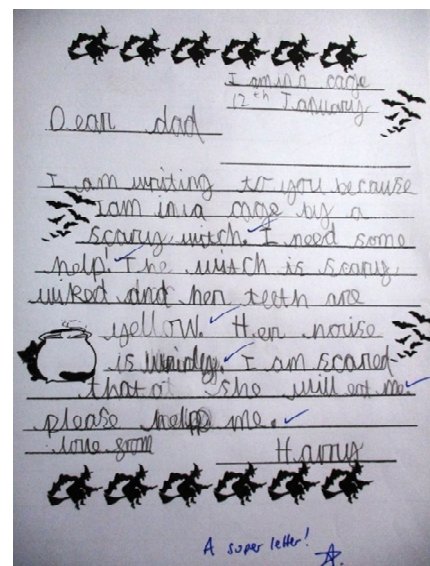 I am in a cage
12th January
Dear dad
I am writing to you because
I am in a cage by a
scary witch. I need some
help! The witch is scary,
wiked and her teeth are
yellow. Her norise
is I am scared
that she will eat me.
please help me.
love from Harry
A super letter!